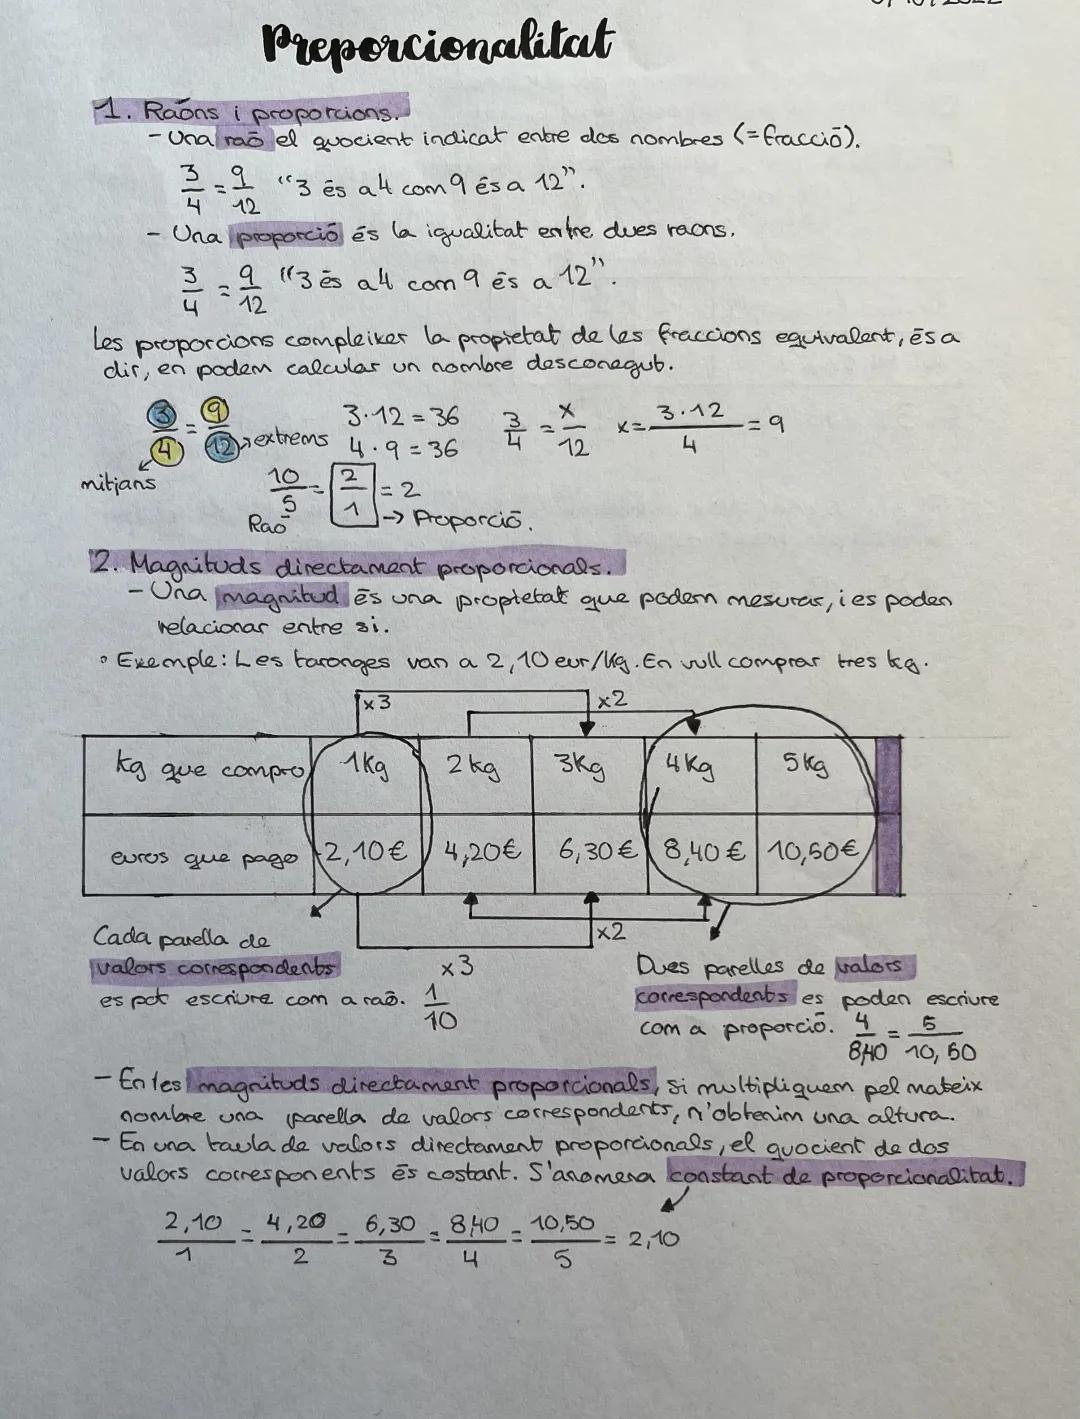 Preporcionalitat
1. Raóns i proporcions.
- Una raó el quocient indicat entre dos nombres (=fracció).
3/4 = 9/12 "3 és a 4 com 9 és a 12".
- Una proporció és la igualitat entre dues raons.
3/4 = 9/12 "3 és a 4 com 9 és a 12".
Les proporcions compleixer la propietat de les fraccions equivalent, és a
dir, en podem calcular un nombre desconegut.
3/4 = 9/12 → extrems 3·12=36 3/4 = x/12 x= 3·12/4 = 9
4·9=36
mitjans
10/5 = 2/1 = 2
Raó → Proporció.
2. Magnituds directament proporcionals.
- Una magnitud és una propietat que podem mesurar, i es poden
relacionar entre si.
° Exemple: Les taronges van a 2,10 eur/kg. En vull comprar tres kg.
x3 x2
kg que compro 1kg 2kg 3kg 4kg 5kg
euros que pago 2,10€ 4,20€ 6,30€ 8,40€ 10,50€
x2
x3
Cada parella de
valors correspondents
es pot escriure com a raó. 1/10
Dues parelles de valors
correspondents es poden escriure
com a proporció. 4/8,40 = 5/10,50
- En les magnituds directament proporcionals, si multipliquem pel mateix
nombre una parella de valors correspondents, n'obtenim una altura.
- En una taula de valors directament proporcionals, el quocient de dos
valors corresponents és costant. S'anomena constant de proporcionalitat.
2,10/1 = 4,20/2 = 6,30/3 = 8,40/4 = 10,50/5 = 2,10